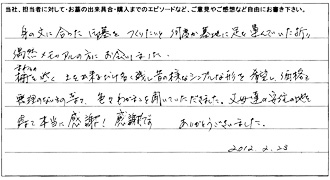 当社、担当者に対して・お墓の出来具合・購入までのエピソードなど、ご意見やご感想など自由にお書き下さい。
身の丈に合った お墓を つくりたいと 何度か墓地に足を運んでいた折り
偶然メモリアルの方に お会いしました。
土をお を 残し 昔の様なシンプルな形を 希望し、価格も
無理のない で、色々 わがまま を聞いていただきました。
本当に 感謝! 感謝です ありがとうございました。
2012.2.28